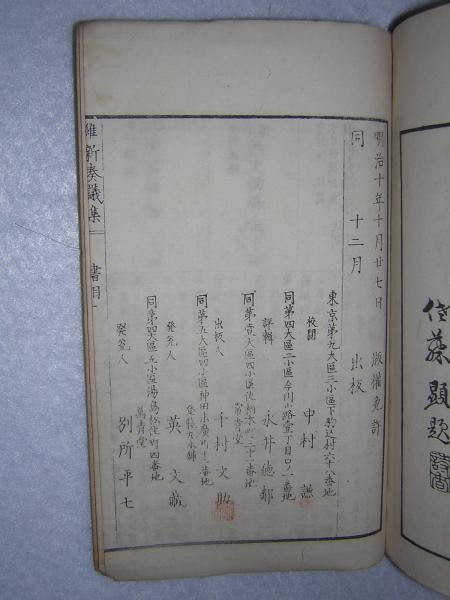 佐藤顕題
明治十年十月廿七日 版權免許
同 十二月 出板
東京第九大區三小區下駒込村六十八番地
校閲 中村 謙
同第四大區二小區今川小路壹丁目口ノ一番地
評輯 永井德鄰
同第壹大區四小區 二十二番地
出板人 千村文助
同第五大區四小區神田小廣町十二番地
發兌人 英 文藏
同第四大區五小區湯島 町四番地
萬青堂
發兌人 別所平七
維新奏議集 書目